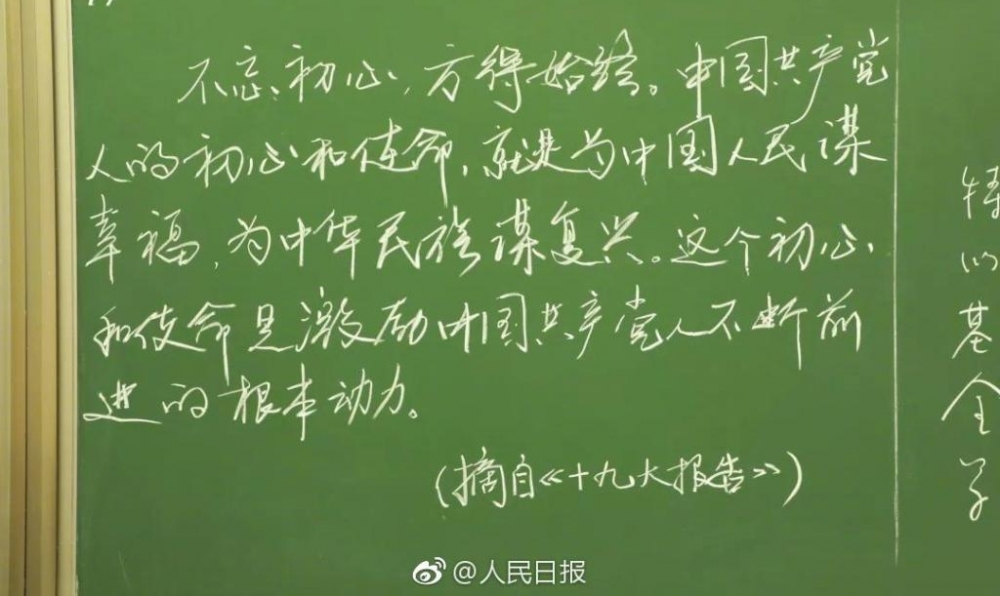 不忘初心,方得始终。中国共产党
人的初心和使命,就是为中国人民谋
幸福,为中华民族谋复兴。这个初心
和使命是激励中国共产党人不断前
进的根本动力。
(摘自《十九大报告》)
的
基
全
@人民日报